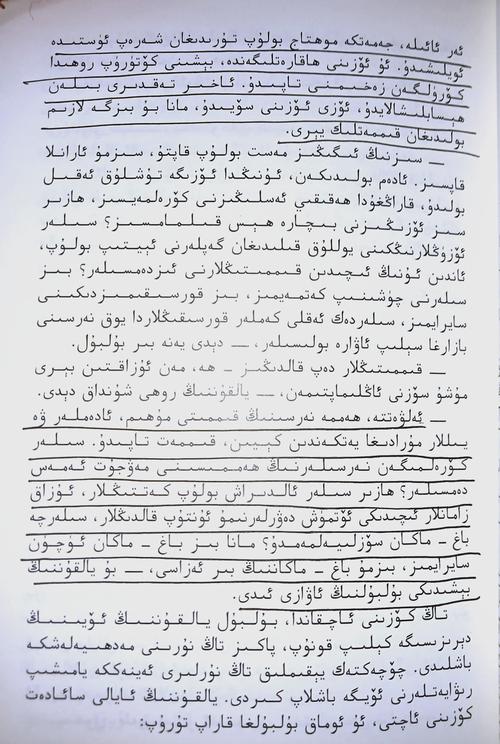 ئەر ئائىلە، جەمەتكە موھتاج بولۇپ تۇرىدىغان شەرەپ ئۈستىدە
ئويلىشىدۇ. ئۇ ئۆزىنى ھاقارەتلىگەندە، بېشىنى كۆتۈرۈپ روھىدا
كۆرۈلگەن زەخىمنى تاپىدۇ. ئاخىر تەقدىرى بىلەن
ھېسابلىشالايدۇ، ئۆزى ئۆزىنى سۆيىدۇ، مانا بۇ بىزگە لازىم
بولىدىغان قىممەتلىك يېرى.
— سىزنىڭ ئىگىڭىز مەست بولۇپ قاپتۇ، سىزمۇ ئارانلا
قاپسىز. ئادەم بولىدىكەن، ئۇنىڭدا ئۆزىگە تۇشلۇق ئەقىل
بولىدۇ، قاراڭغۇدا ھەقىقىي ئەسلىڭىزنى كۆرەلمەيسىز، ھازىر
سىز ئۆزىڭىزنى بىچارە ھېس قىلمامسىز؟ سىلەر
ئۆزۈڭلارنىڭكىنى يوللۇق قىلىدىغان گەپلەرنى ئېيتىپ بولۇپ،
ئاندىن ئۇنىڭ ئىچىدىن قىممىتىڭلارنى ئىزدەمسىلەر؟ بىز
سىلەرنى چۈشىنىپ كەتمەيمىز، بىز قورسىقىمىزدىكىنى
سايرايمىز، سىلەردەك ئەقلى كەملەر قورسىقىڭلاردا يوق نەرسىنى
بازارغا سېلىپ ئاۋارە بولىسىلەر، — دېدى يەنە بىر بۇلبۇل.
— قىممىتىڭلار دەپ قالدىڭىز - ھە، مەن ئۇزاقتىن بېرى
مۇشۇ سۆزنى ئاڭلىماپتىمەن، — يالقۇننىڭ روھى شۇنداق دېدى.
— ئەلۋەتتە، ھەممە نەرسىنىڭ قىممىتى مۇھىم، ئادەملەر ۋە
يىللار مۇرادىغا يەتكەندىن كېيىن، قىممەت تاپىدۇ. سىلەر
كۆرەلمىگەن نەرسىلەرنىڭ ھەممىسىنى مەۋجۇت ئەمەس
دەمسىلەر؟ ھازىر سىلەر ئالدىراش بولۇپ كەتتىڭلار، ئۇزاق
زامانلار ئىچىدىكى ئۆتمۈش دەۋرلەرنىمۇ ئۇنتۇپ قالدىڭلار، سىلەرچە
باغ - ماكان سۆزلىيەلمەمدۇ؟ مانا بىز باغ - ماكان ئۈچۈن
سايرايمىز، بىزمۇ باغ - ماكاننىڭ بىر ئەزاسى، — بۇ يالقۇننىڭ
بېشىدىكى بۇلبۇلنىڭ ئاۋازى ئىدى.
تاڭ كۆزىنى ئاچقاندا، بۇلبۇل يالقۇننىڭ ئۆيىنىڭ
دېرىزىسىگە كېلىپ قونۇپ، پاكىز تاڭ نۇرىنى مەدھىيەلەشكە
باشلىدى. چۆچەكتەك يېقىملىق تاڭ نۇرلىرى ئەينەككە يامىشىپ
رىۋايەتلەرنى ئۆيگە باشلاپ كىردى. يالقۇننىڭ ئايالى سائادەت
كۆزىنى ئاچتى، ئۇ ئوماق بۇلبۇلغا قاراپ تۇرۇپ: